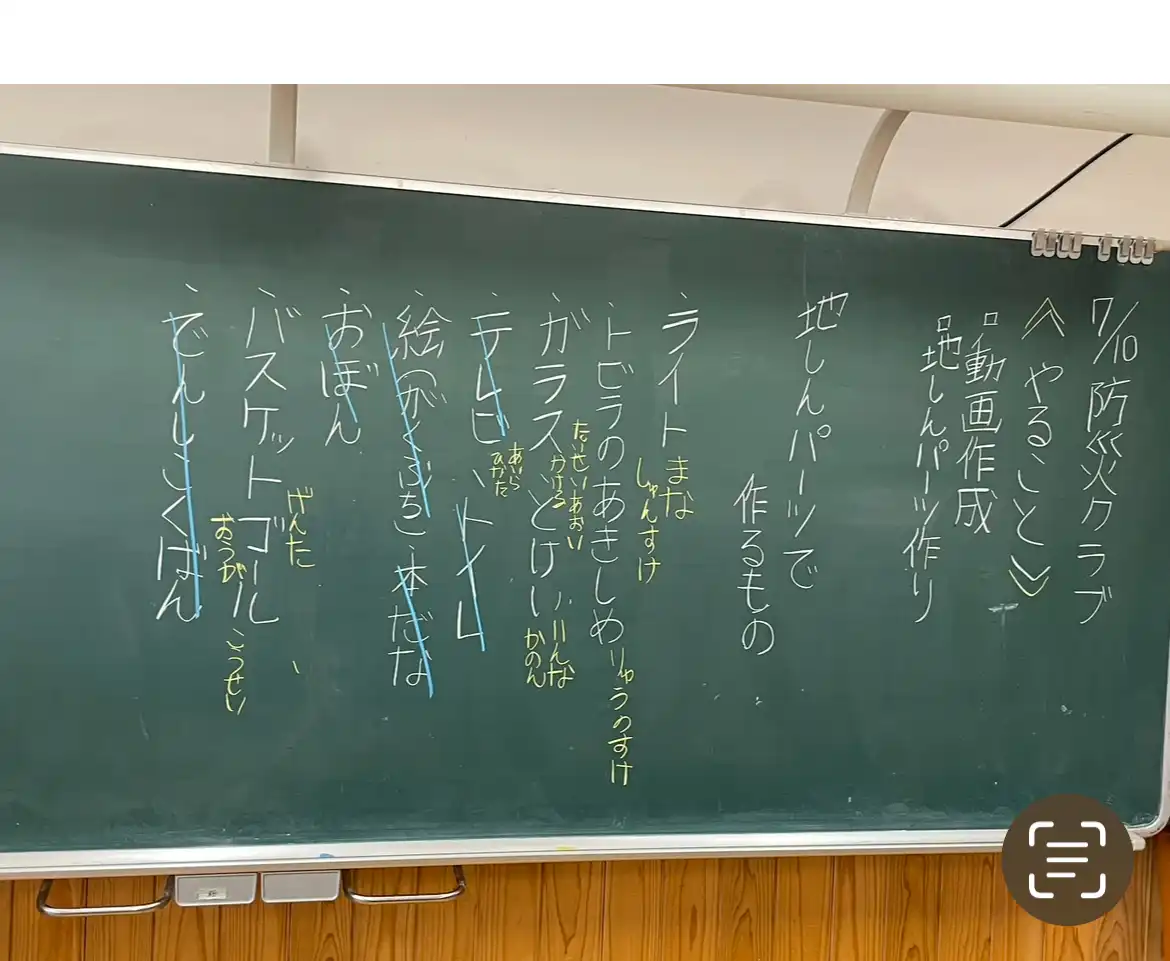 7/10 防災クラブ
《やること》
・動画作成
・地しんパーツ作り
地しんパーツで
作るもの
・ライト まな
しゅんすけ
・トビラのあきしめ りゅうのすけ
・ガラス・とけい
たいせい あおい
かける
にんな
かのん
・テレビ・トイレ
あいら
ひなた
・絵(がくぶち)・本だな
・おぼん
・バスケットゴール
げんた
おうが
こうせい
・でんしこくばん